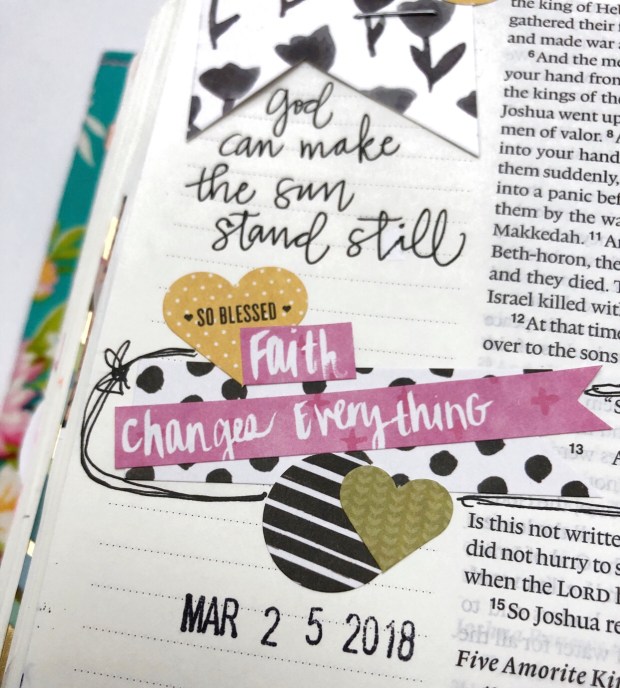 god
can make
the sun
stand still
SO BLESSED
Faith
Changes Everything
MAR 25 2018
the king of Heb
gathered their
and made war
6 And the me
your hand from
the kings of the
Joshua went up
men of valor. 8
into your hand
them suddenly,
into a panic bef
them by the wa
Makkedah. 11 A
Beth-horon, the
and they died. T
Israel killed with
12 At that time
over to the sons
"S
13 A
Is this not writte
did not hurry to s
when the LORD
15 So Joshua re
Five Amorite Kin